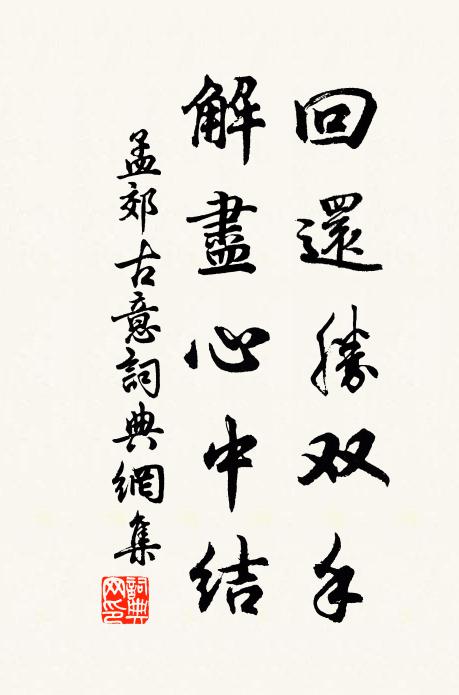 回還勝双手
解盡心中結
孟郊古意詞典網集
詞典網印